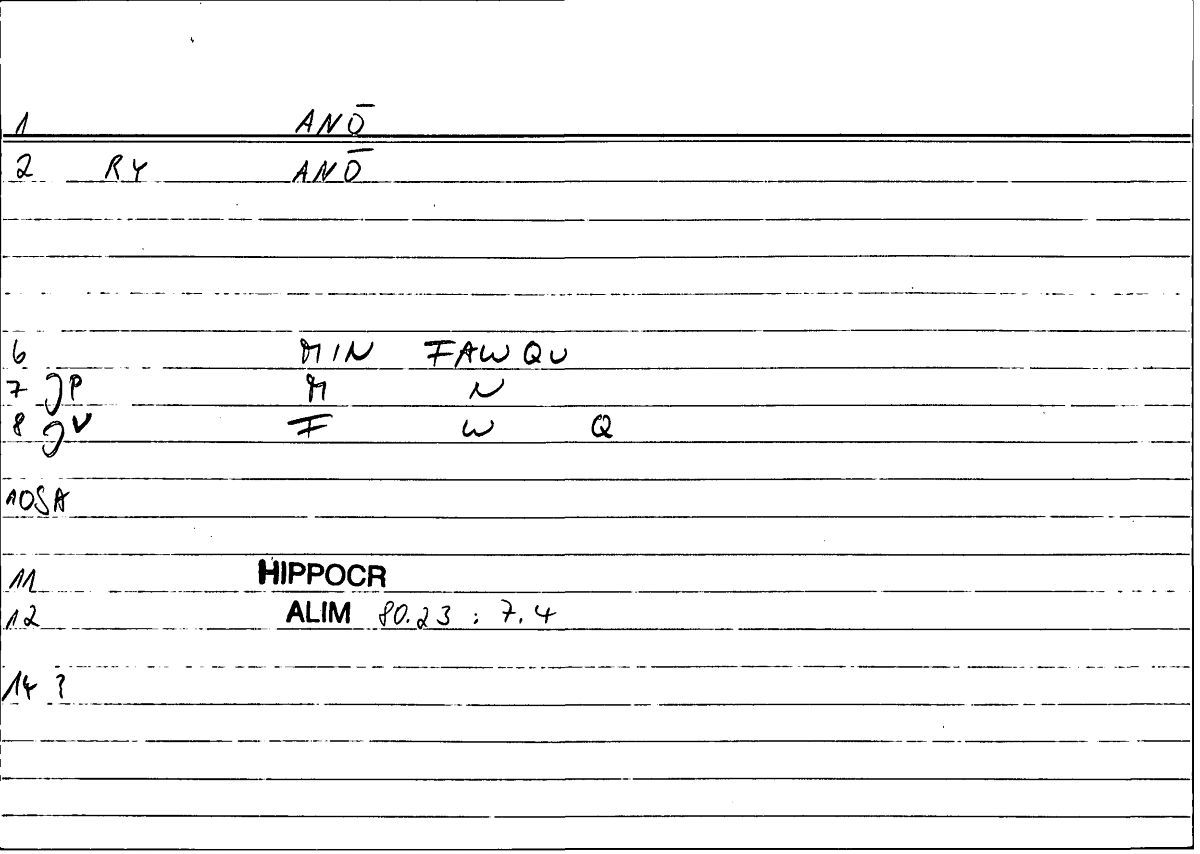 1 ANŌ
2 RY ANŌ
6 MIN FAWQU
7 JP M N
8 JV F W Q
10 SA
11 HIPPOCR
12 ALIM 80.23 : 7.4
14 ?